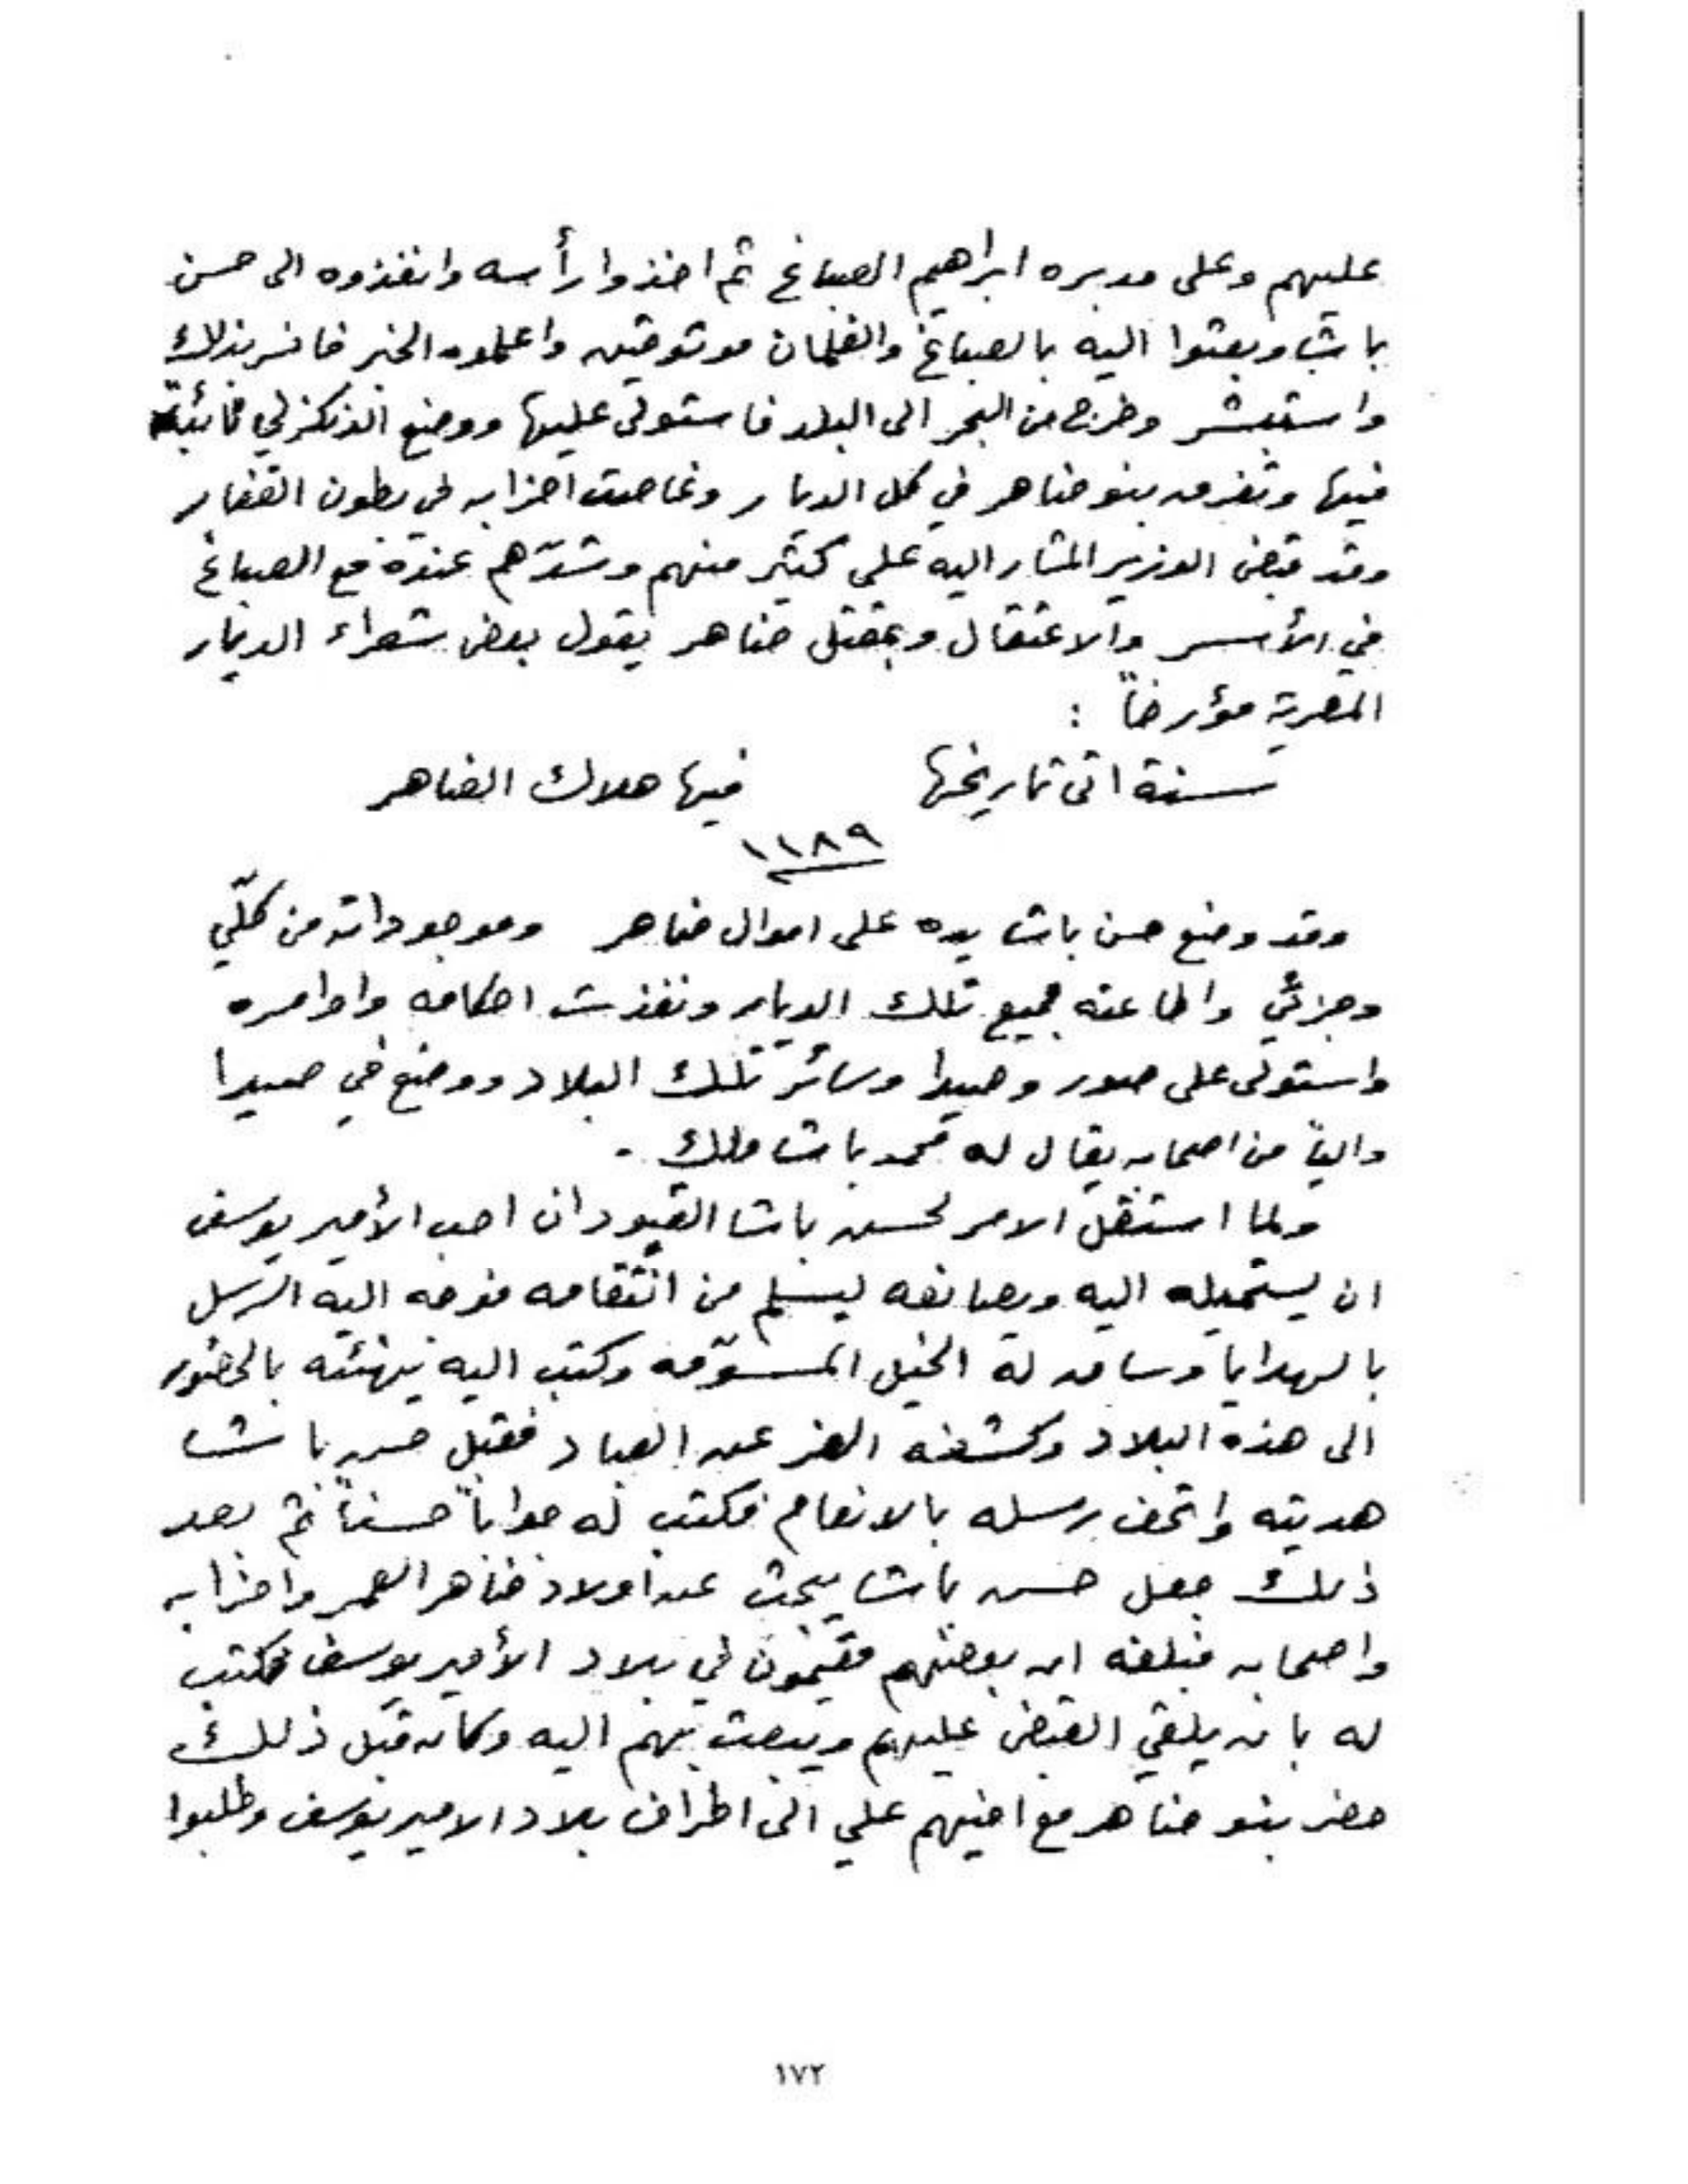 عليهم وعلى مدبره ابراهيم الصباغ ثم اخذوا رأسه وانفذوه الى حسن
باشا وبعثوا اليه بالصباغ والغلمان موثوقين واعلموه الخبر فانسر بذلك
واستبشر وخرج من البحر الى البلد فاستولى عليها ووضع الدنكزلي نائبه
فيها وتفرق بنو ضاهر في كل الديار وغاصت احزابه في بطون القفار
وقد قبض الوزير المشار اليه على كثير منهم وشدّهم عنده مع الصباغ
في الأسر والاعتقال وبمقتل ضاهر يقول بعض شعراء الديار
المصرية مؤرخاً :
سنة اتى تاريخها فيها هلاك الضاهر
١١٨٩
وقد وضع حسن باشا يده على اموال ضاهر وموجوداته من كلّي
وجزئي واطاعته جميع تلك الديار ونفذت احكامه واوامره
واستولى على صور وصيدا وسائر تلك البلاد ووضع في صيدا
والياً من اصحابه يقال له محمد باشا ملك .
ولما استقل الامر لحسن باشا القبودان احب الأمير يوسف
ان يستميله اليه ويصانعه ليسلم من انتقامه فوجه اليه الرسل
بالهدايا وساق له الخيل المسوّمه وكتب اليه يهنئه بالحضور
الى هذه البلاد وكشفه الضر عن العباد فقبل حسن باشا
هديته واتحف رسله بالانعام فكتب له جواباً حسناً ثم بعد
ذلك جعل حسن باشا يبحث عن اولاد ضاهر العمر واحزابه
واصحابه فبلغه ان بعضهم مقيمون في بلاد الأمير يوسف فكتب
له بان يلقي القبض عليهم ويبعث بهم اليه وكان قبل ذلك
حضر بنو ضاهر مع اخيهم علي الى اطراف بلاد الامير يوسف وطلبوا
١٧٢